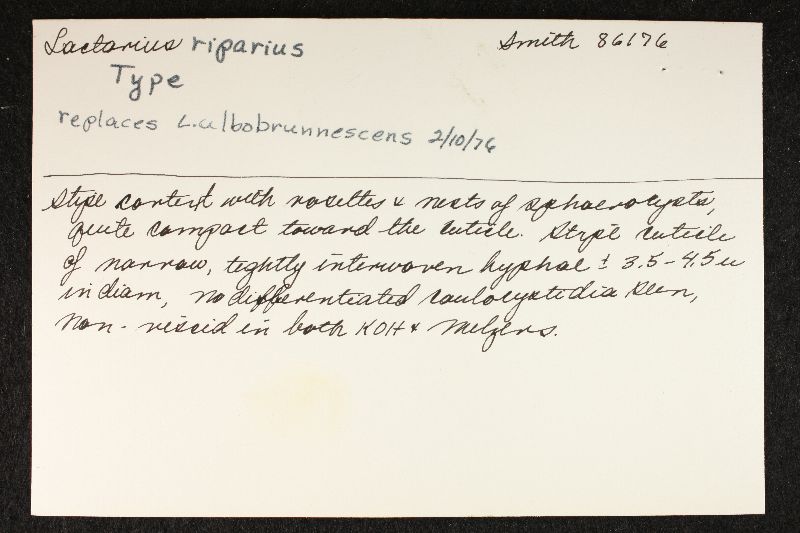 Lactarius riparius Smith 86176
Type
replaces L. albobrunnescens 2/10/76
Stipe context with rosettes & nests of sphaerocysts,
quite compact toward the cuticle. Stipe cuticle
of narrow, tightly interwoven hyphae ± 3.5-4.5 u
in diam, no differentiated caulocystidia seen,
non-viscid in both KOH & Melzers.